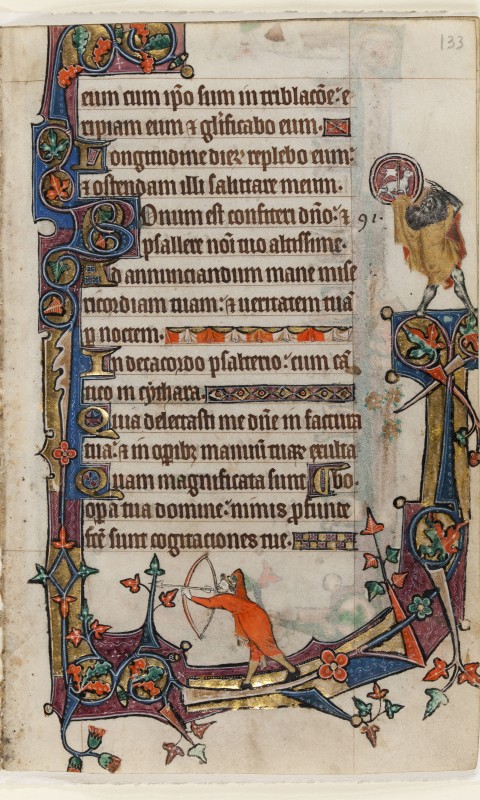 133
eum cum ip̄o sum in tribulac̄oe: e
ripiam eum ⁊ gl̄ificabo eum.
Longitudine dierꝝ replebo eum:
⁊ ostendam illi salutare meum.
Bonum est confiteri dn̄o: ⁊
91.
psallere noī tuo altissime.
Ad annunciandum mane mise
ricordiam tuam: ⁊ ueritatem tuā
ꝑ noctem.
In decacordo psalterio: cum cā
tico in cythara.
Quia delectasti me dn̄e in factura
tua: ⁊ in oꝑibꝫ manuū tuaꝝ exulta
Quam magnificata sunt bo.
oꝑa tua domine: nimis ꝓfunde
fc̄e sunt cogitaciones tue.